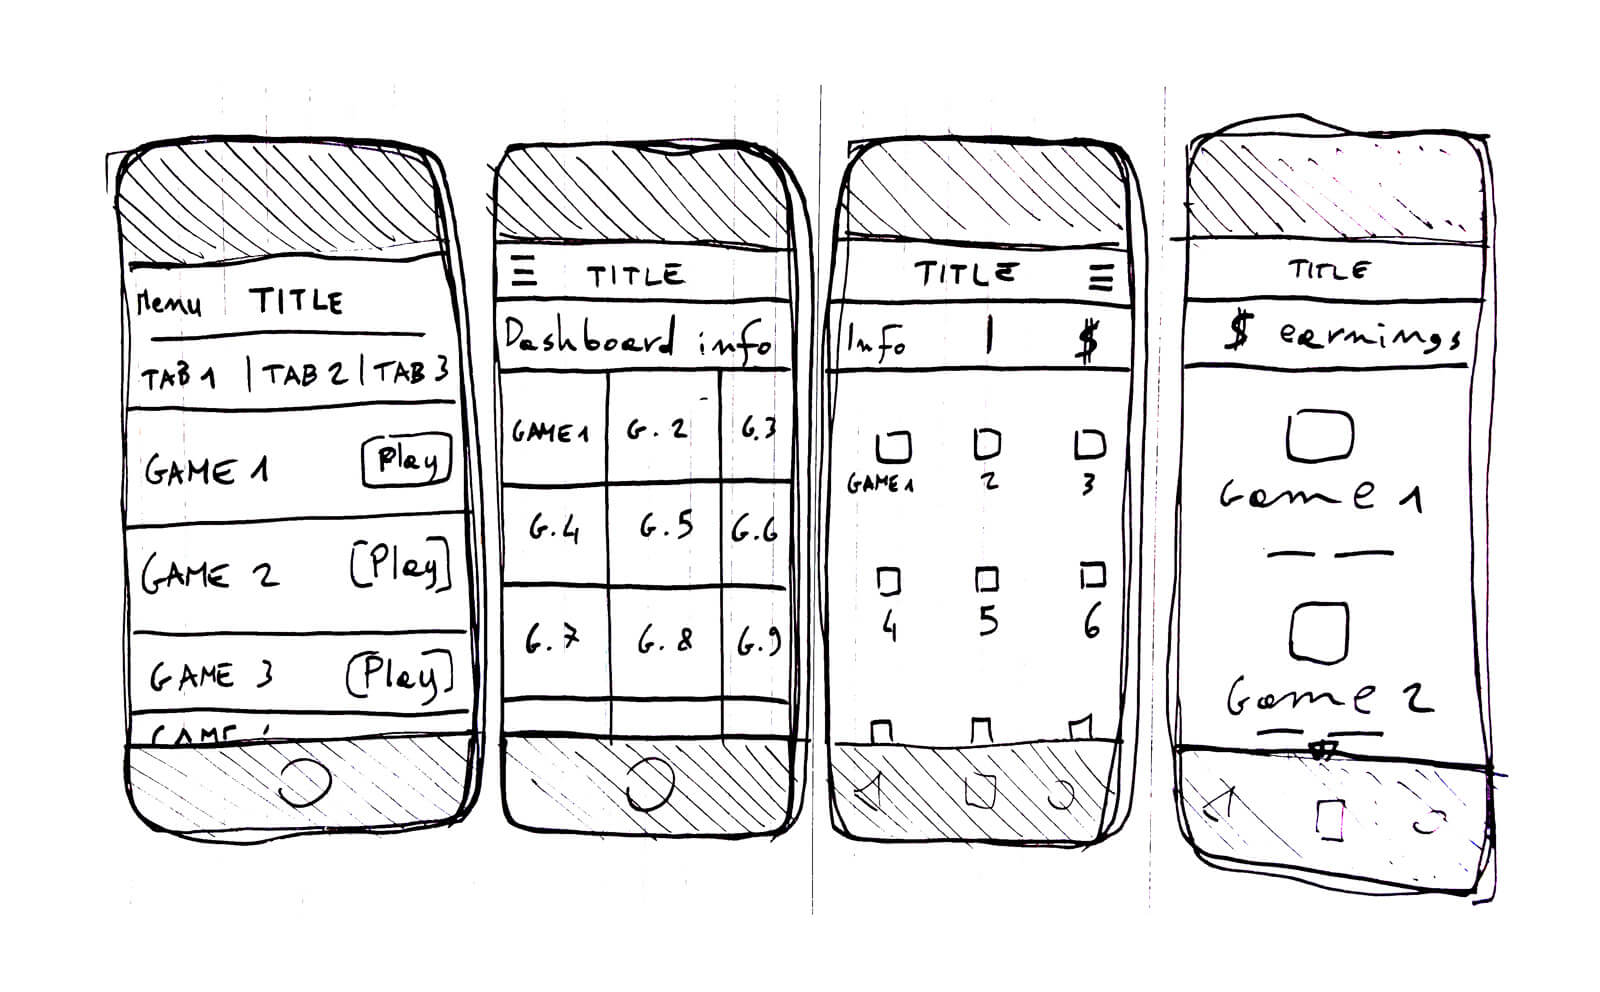 Menu TITLE
TAB 1 | TAB 2 | TAB 3
GAME 1 Play
GAME 2 [Play]
GAME 3 [Play]
GAME
TITLE
Dashboard info
GAME 1 G. 2 G.3
G.4 G.5 G.6
G.7 G.8 G.9
TITLE
Info | $
GAME 1 2 3
4 5 6
TITLE
$ earnings
Game 1
Game 2